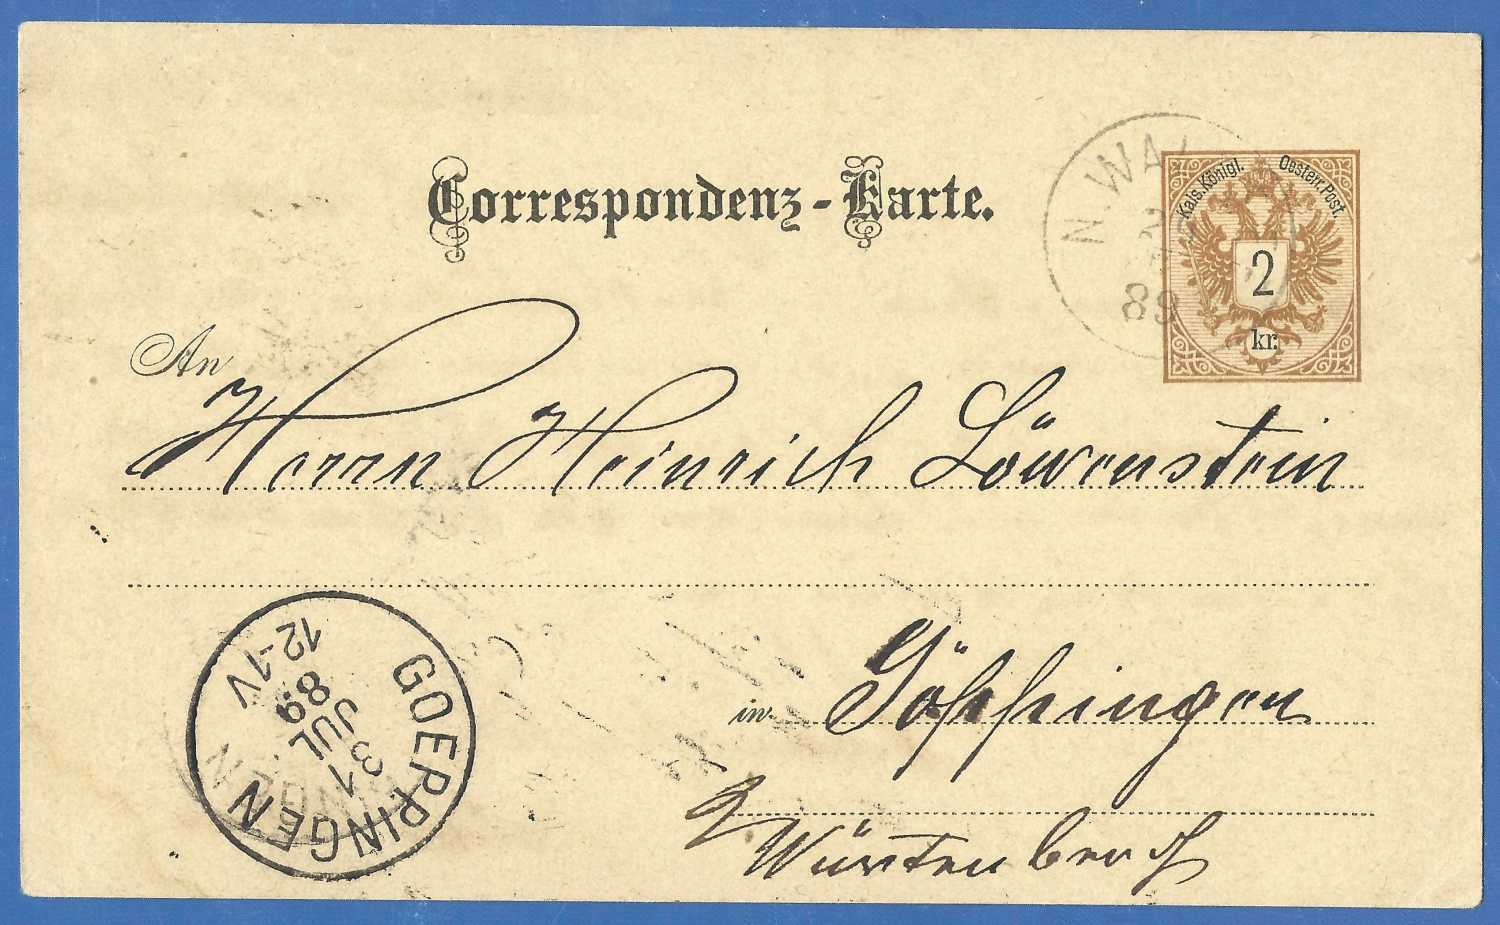 Correspondenz-Karte.
N. WAL
89
Kais. Königl. Oesterr. Post.
2
kr.
An
Herrn Heinrich Löwenstein
in Göppingen
Würtenberg
GOEPPINGEN
31
JUL
89
12-1V